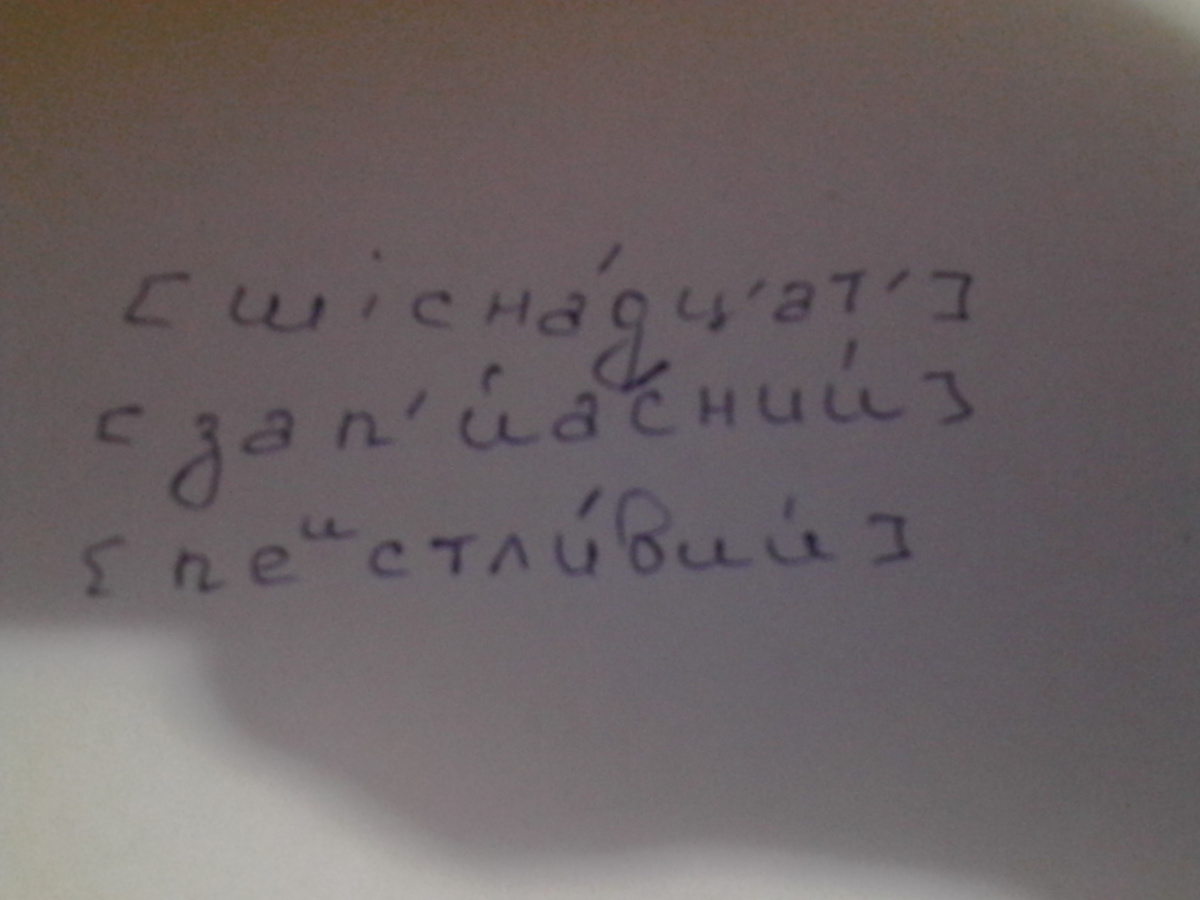 [шісна́дц'ат']
[зап'йасний]
[пеистли́вий]